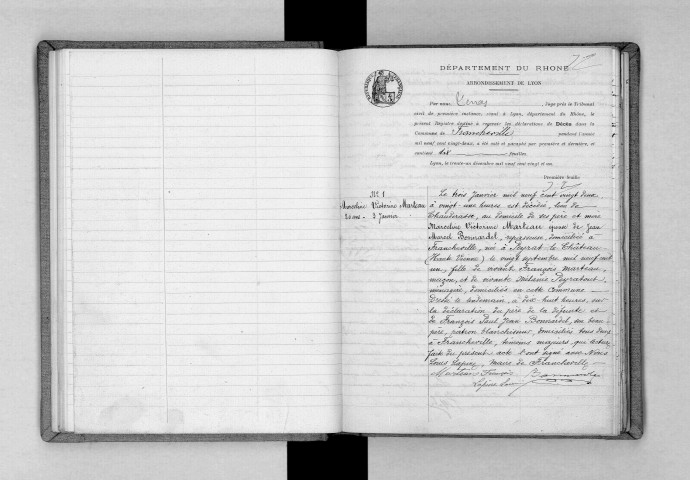 DÉPARTEMENT DU RHONE
ARRONDISSEMENT DE LYON
Par nous, Juge près le Tribunal
civil de première instance, séant à Lyon, département du Rhône, le
présent Registre destiné à recevoir les déclarations de Décès dans la
Commune de Francheville pendant l'année
mil neuf cent vingt-deux, a été coté et paraphé par première et dernière, et
contient dix feuilles.
Lyon, le trente-un décembre mil neuf cent vingt et un.
Première feuille
N° 1
Marceline Victorine Marteau
20 ans - 3 Janvier
Le trois Janvier mil neuf cent vingt deux
à vingt-une heures est décédée, lieu de
au domicile de ses père et mère
Marceline Victorine Marteau épouse de Jean
Marcel Bonnardel, repasseuse domiciliée à
Francheville, née à Peyrat-le-Château
(Haute Vienne) le vingt septembre mil neuf cent
un, fille de vivant François Marteau,
maçon, et de vivante Mélanie Peyratout
ménagère, domiciliés en cette Commune -
Dressé le lendemain, à dix huit heures, sur
la déclaration du père de la défunte et
de François Paul Jean Bonnardel, son beau
père, patron blanchisseur, domiciliés tous deux
à Francheville, témoins majeurs, qui lecture
faite du présent acte l'ont signé avec Nous
Louis maire de Francheville
Marteau François